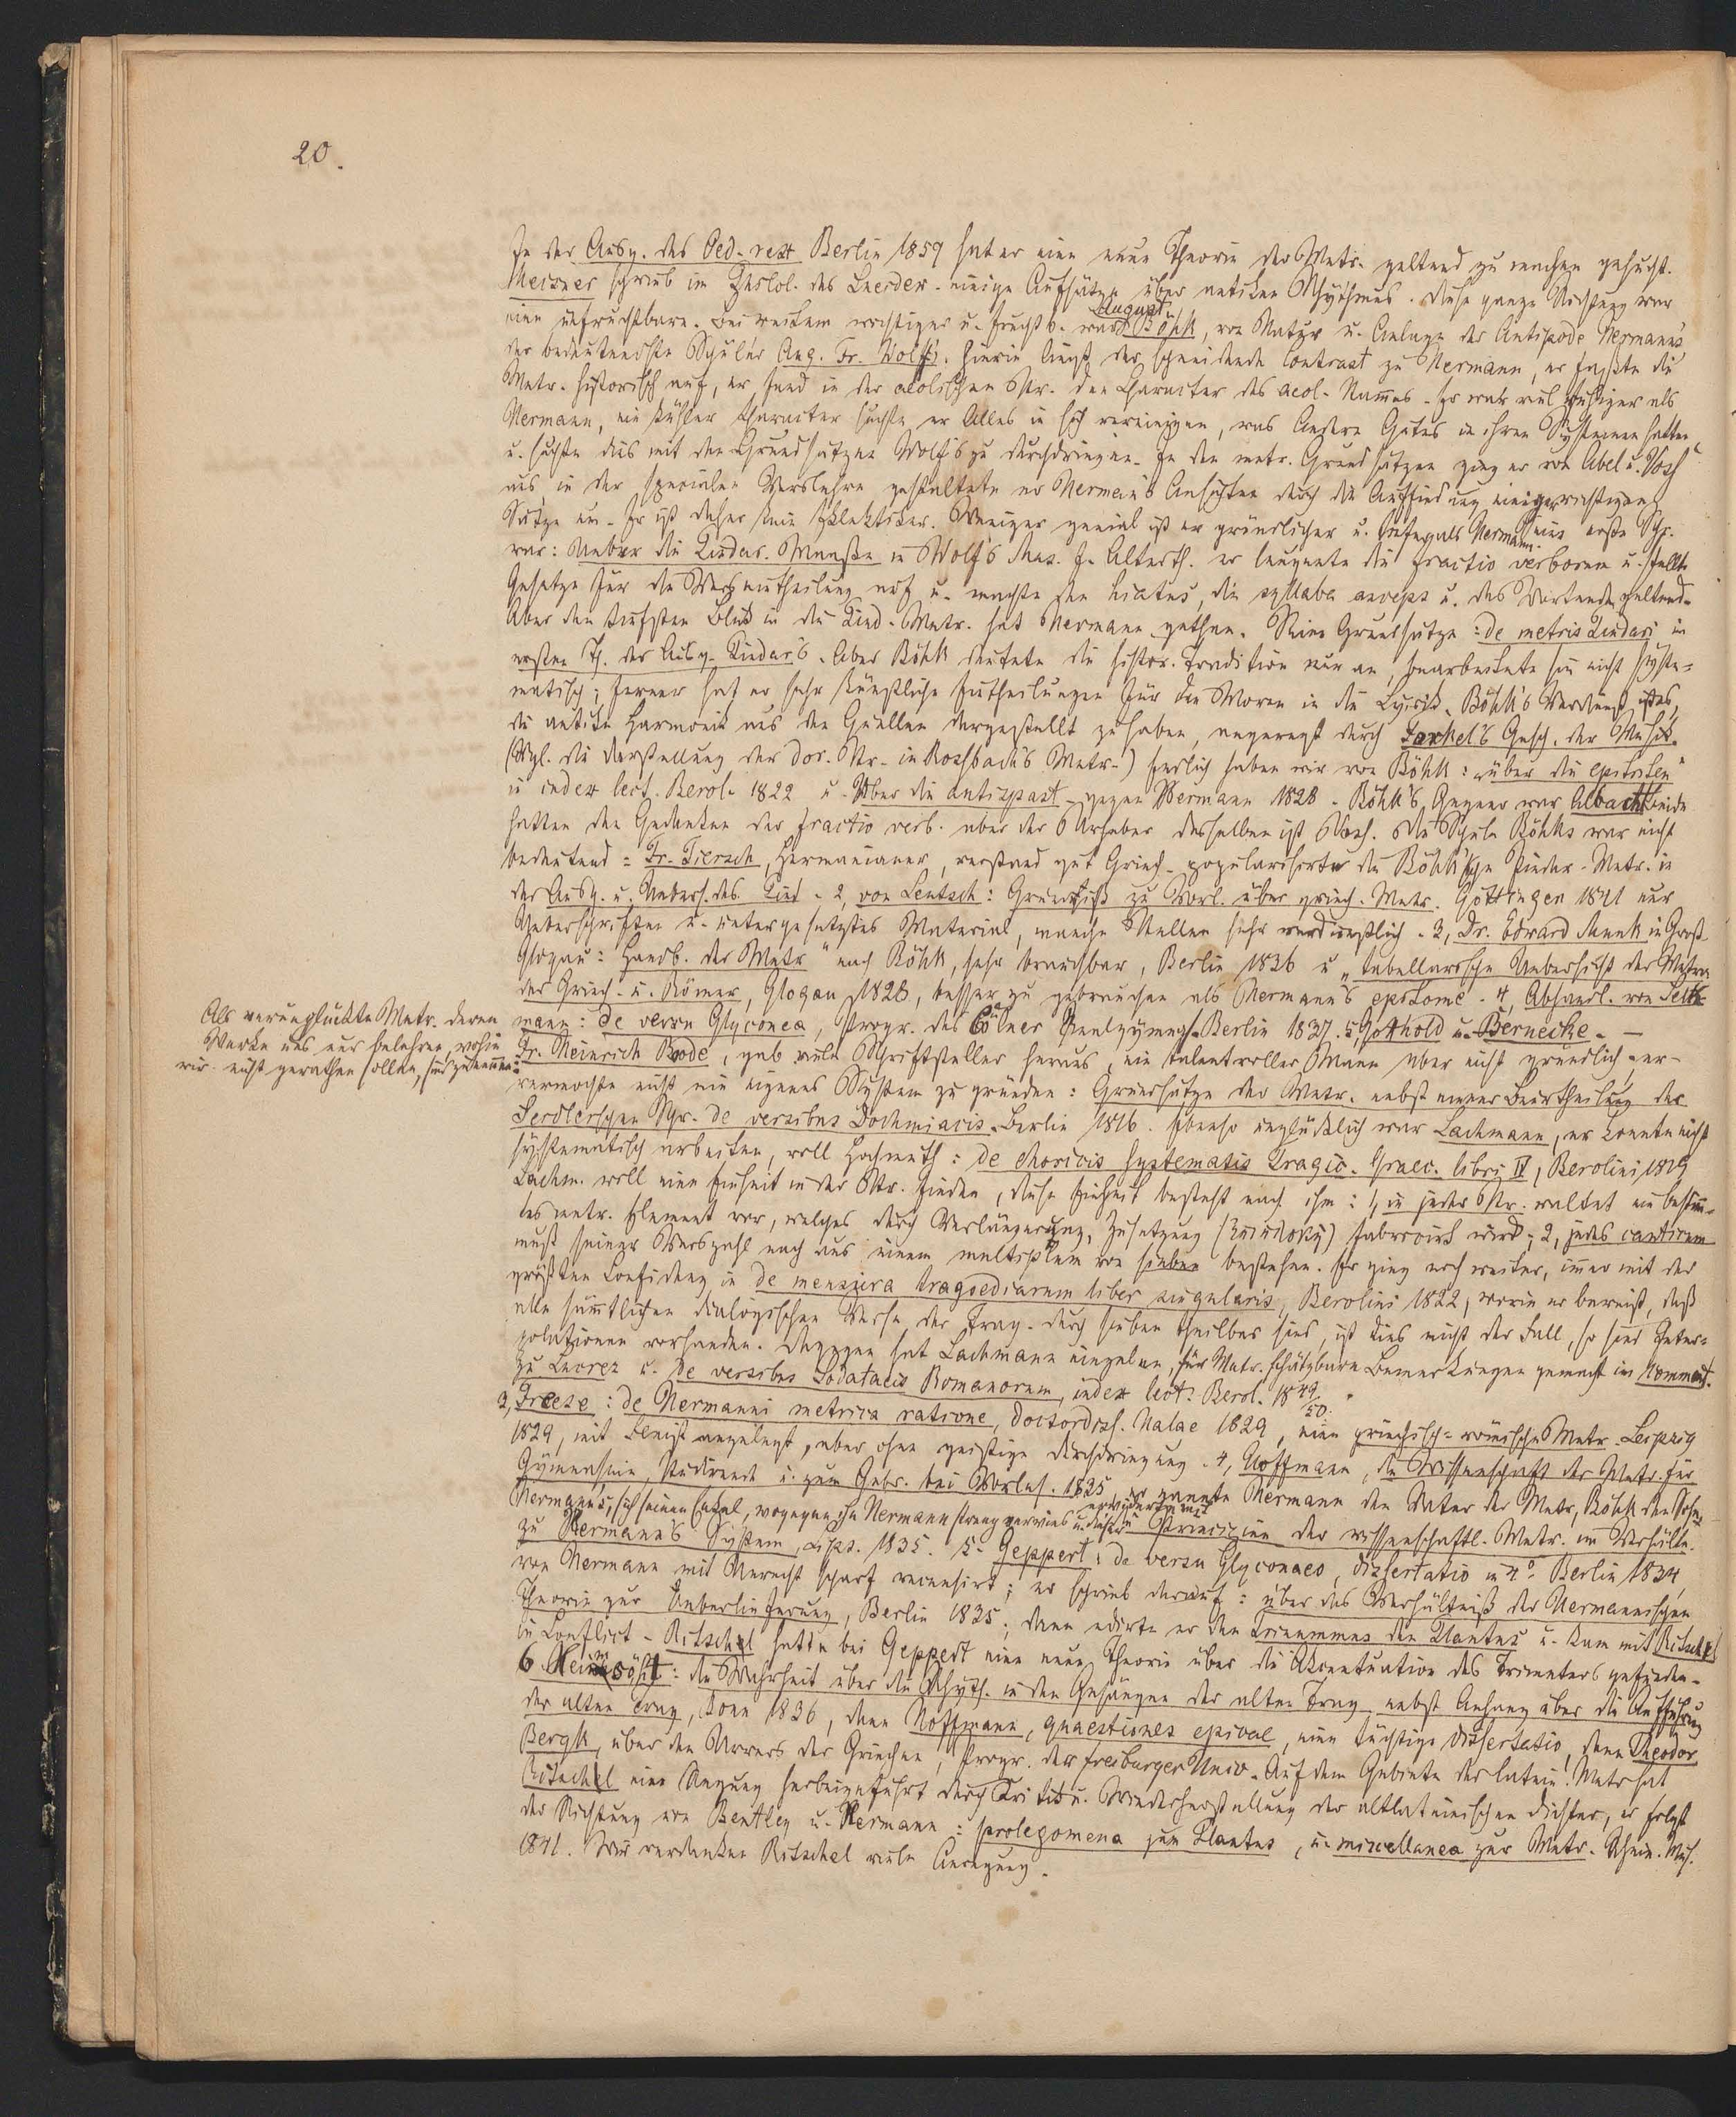 20.
In der Ausg. des Oed. rex Berlin 1859 hat er eine neue Theorie der Metr. geltend zu machen gesucht.
Meissner schrieb im Philol. des Leersder. einige Aufsätze über antiken Rhythmus. Diese ganze Richtung war
eine unfruchtbare. Bei weitem wichtiger u. fruchtb. war August Böhk, von Natur u. Anlage der Antipode Hermanns
der bedeutendste Schüler Aug. Fr. Wolfs. Hierin liegt der schneidende Contrast zu Hermann, er faßte die
Metr. historisch auf, er fand in der aeolischen Str. den Character des aeol. Stam̄es. Er war viel ruhiger als
Hermann, ein kühler Character suchte er Alles in sich vereinigen, was Andere Gutes in ihren Systemen hatten,
u. suchte dies mit den Grundsätzen Wolf's zu durchdringen. In den metr. Grundsätzen ging er von Abel u. Voß
aus, in der speciellen Verslehre gestaltete er Herman's Ansichten durch die Auffindung einiger wichtigen
Sätze um. Er ist daher kein Eklektiker. Weniger genial ist er gründlicher u. tiefer als Hermann. Seine erste Schr.
war: Ueber die Pindar. Maaße in Wolf's Mus. f. Alterth. er leugnete die fractio verborum u. stellte
Gesetze für die Versabtheilung auf u. machte den hiatus, die syllaba anceps u. das Wortende geltend.
Aber den tiefsten Blick in die Pind. Metr. hat Hermann gethan. Seine Grundsätze: de metris Pindari im
ersten Th. der Ausg. Pindar's. Aber Böhk deutete die histor. Tradition nur an, er arbeitete sie nicht syste=
matisch; ferner hat er sehr künstliche Eintheilungen für die Moren in die Lyrik. Böhk's Verdienst ist es,
die antike Harmonik aus den Quellen dargestellt zu haben, angeregt durch Forkel's Gesch. der Musik.
(Vgl. die Darstellung der dor. Str. in Rossbach's Metr.) Endlich haben wir von Böhk: „über die epitriten"
in index lect. Berol. 1822 u. Ueber die antispast. gegen Hermann 1828. Böhk's Gegner war Albach. Beide
hatten den Gedanken der fractio verb. aber der Urheber desselben ist Voß. Die Schule Böhks war nicht
bedeutend: Fr. Tiersch, Hermanianer, verstand gut Griech. popularisirte die Böhk'sche Pindar. Metr. in
der Ausg. u. Uebers. des Pind. 2, von Leutsch: Grundriß zu Vorl. über griech. Metr. Göttingen 1841 nur
Ueberschriften u. untergesetztes Material, manche Stellen sehr verdienstlich. 3, Dr. Edward Munk in Groß
Glogau: Handb. der Metr." nach Böhk, sehr brauchbar, Berlin 1836 u. „tabellarische Uebersicht der Metren
der Griech. u. Römer, Glogau 1828, besser zu gebrauchen als Hermann's epitome. 4, Abhandl. von Selt-
mann: de versu Glyconeo, Progr. des Cölner Realgymnas. Berlin 1837. 5, Gotthold u. Bernecke. —
Als verunglückte Metr. deren
Werke uns nur belehren, wohin
wir nicht gerathen sollen, sind zu nennen:
Fr. Heinrich Bode, gab viele Schriftsteller heraus, ein talentvoller Mann aber nicht gründlich, er
vermochte nicht ein eigenes System zu gründen: Grundsätze der Metr. nebst einer Beurtheilung der
Seidlerschen Schr. de versibus Dochmiacis. Berlin 1816. Ebenso unglücklich war Lachmann, er konnte nicht
systematisch arbeiten, voll Hochmuth: de choricis systematis tragic. Graec. libri IV, Berolini 1819
Lachm. will eine Einheit in der Str. finden, diese Einheit besteht nach ihm: 1, in jeder Str. waltet ein bestim̄-
tes metr. Element vor, welches durch Verlängerung, Zusetzung fabricirt wird; 2, jedes canticum
muß seiner Verszahl nach aus einem multiplum von sieben bestehen. Er ging noch weiter, im̄er mit der
größten Confidenz in de mensura tragoediarum liber singularis, Berolini 1822, worin er beweist, daß
alle sämtlichen dialogischen Verse der Trag. durch sieben theilbar sind, ist dies nicht der Fall, so sind Inter=
polationen vorhanden. Dagegen hat Lachmann einzelne, für Metr. schätzbare Bemerkungen gemacht im Comment.
zu Lucrez u. de versibus Sodatacis Romanorum, index lect. Berol. 1849/50.
3, Freese: de Hermanni metrica ratione, Doctordiss. Halae 1829, eine griechisch=römische Metr. Leipzig
1829, mit Fleiß angelegt, aber ohne geistige Durchdringung. 4, Hoffmann, die Wissenschaft der Metr. für
Gymnasien, Studirende u. zum Gebr. bei Vorles. 1835, er nannte Hermann den Vater der Metr, Böhk den Sohn
Hermann's, sich seinen Enkel, wogegen ihn Hermann streng verwies u. dieser erwiderte mit Principien der wissenschaftl. Metr. im Verhältn.
zu Hermann's System, Lips. 1835. 5. Geppert: de versu Glyconaeo, dissertatio in 4° Berlin 1834,
von Hermann mit Unrecht scharf recensirt; er schrieb darauf: über das Verhältniß der Hermannischen
Theorie zur Ueberlieferung, Berlin 1835; dann edirte er den Trinummus des Plautus u. kam mit Ritschel
in Conflict. Ritschel hatte bei Geppert eine neue Theorie über die Akcentuation des Trimeters gefunden.
6. Heimsöht: die Wahrheit über den Rhyth. in den Gesängen der alten Trag. nebst Anhang über die Aufführung
der alten Trag, Bonn 1836, dann Hoffmann, quaestiones epicae, eine tüchtige Dissertatio, dann Theodor
Bergk, über den Urvers der Griechen, Progr. der freiburger Univ. Auf dem Gebiete der latein. Metr hat
Ritschel eine Regung herbeigeführt durch Kritik u. Wiederherstellung der altlateinischen Dichter, er folgt
der Richtung von Bentley u. Hermann: prolegomena zum Plautus, u. miscellanea zur Metr. Rhein. Mus.
1841. Wir verdanken Ritschel viele Anregung.